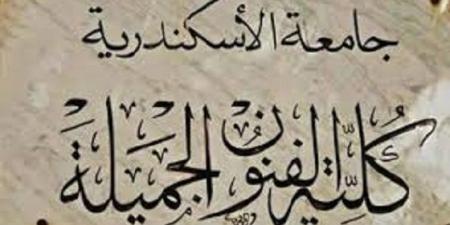 جامعة الأسكندرية
كُليَّة الفنُون الجميلة